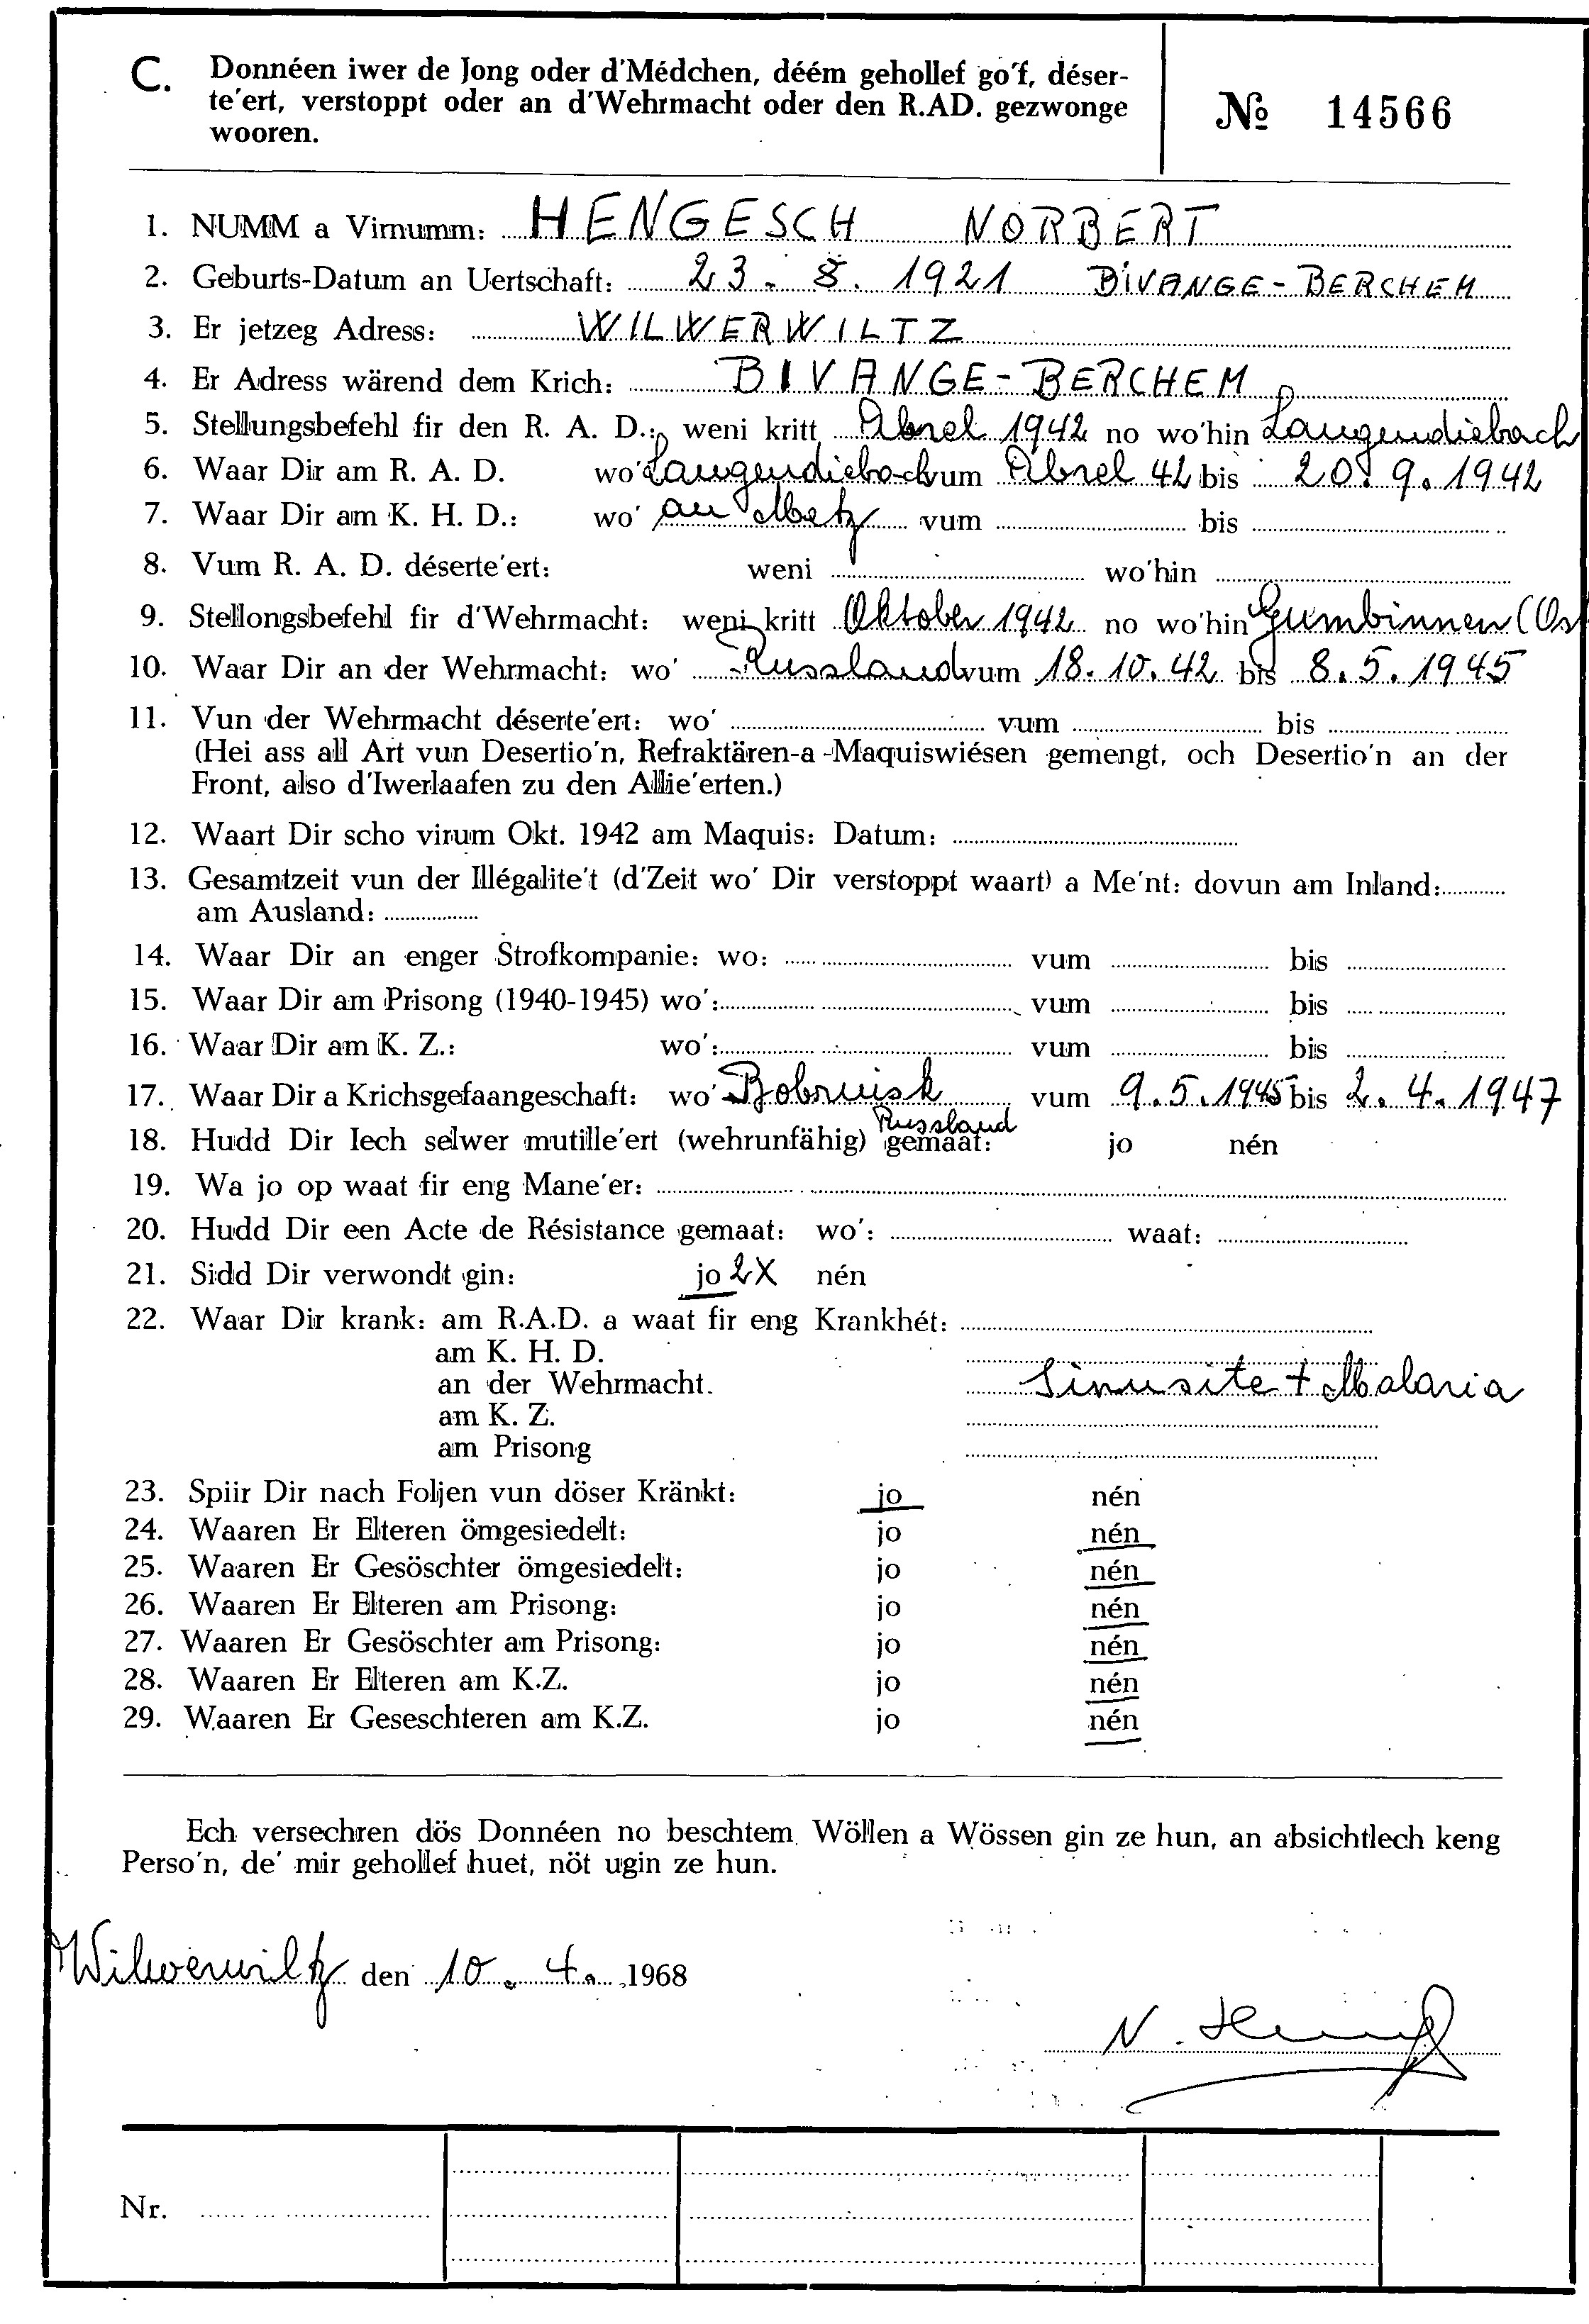 C. Donnéen iwer de Jong oder d'Médchen, déém gehollef go'f, déser-
te'ert, verstoppt oder an d'Wehrmacht oder den R.AD. gezwonge
wooren.
№ 14566
1. NUMM a Virnumm: HENGESCH NORBERT
2. Geburts-Datum an Uertschaft: 23. 8. 1921 BIVANGE-BERCHEM
3. Er jetzeg Adress: WILWERWILTZ
4. Er Adress wärend dem Krich: BIVANGE-BERCHEM
5. Stellungsbefehl fir den R. A. D.: weni kritt Abrel 1942 no wo'hin Langendiebach
6. Waar Dir am R. A. D. wo' Langendiebach vum Abrel 42 bis 20. 9. 1942
7. Waar Dir am K. H. D.: wo' an Metz vum bis
8. Vum R. A. D. déserte'ert: weni wo'hin
9. Stellongsbefehl fir d'Wehrmacht: weni kritt Oktober 1942 no wo'hin Gumbinnen (Os
10. Waar Dir an der Wehrmacht: wo' Russland vum 18. 10. 42 bis 8. 5. 1945
11. Vun der Wehrmacht déserte'ert: wo' vum bis
(Hei ass all Art vun Desertio'n, Refraktären-a -Maquiswiésen gemengt, och Desertio'n an der
Front, also d'Iwerlaafen zu den Allie'erten.)
12. Waart Dir scho virum Okt. 1942 am Maquis: Datum:
13. Gesamtzeit vun der Illégalite't (d'Zeit wo' Dir verstoppt waart) a Me'nt: dovun am Inland:
am Ausland:
14. Waar Dir an enger Strofkompanie: wo: vum bis
15. Waar Dir am Prisong (1940-1945) wo': vum bis
16. Waar Dir am K. Z.: wo': vum bis
17. Waar Dir a Krichsgefaangeschaft: wo' Bobruisk vum 9. 5. 1945 bis 2. 4. 1947
Russland
18. Hudd Dir Iech selwer mutille'ert (wehrunfähig) gemaat: jo nén
19. Wa jo op waat fir eng Mane'er:
20. Hudd Dir een Acte de Résistance gemaat: wo': waat:
21. Sidd Dir verwondt gin: jo 2X nén
22. Waar Dir krank: am R.A.D. a waat fir eng Krankhét:
am K. H. D.
an der Wehrmacht. Sinusite + Malaria
am K. Z.
am Prisong
23. Spiir Dir nach Foljen vun döser Kränkt: jo nén
24. Waaren Er Elteren ömgesiedelt: jo nén
25. Waaren Er Gesöschter ömgesiedelt: jo nén
26. Waaren Er Elteren am Prisong: jo nén
27. Waaren Er Gesöschter am Prisong: jo nén
28. Waaren Er Elteren am K.Z. jo nén
29. Waaren Er Geseschteren am K.Z. jo nén
Ech versechren dös Donnéen no beschtem Wöllen a Wössen gin ze hun, an absichtlech keng
Perso'n, de' mir gehollef huet, nöt ugin ze hun.
Wilwerwiltz den 10. 4. 1968
Nr.